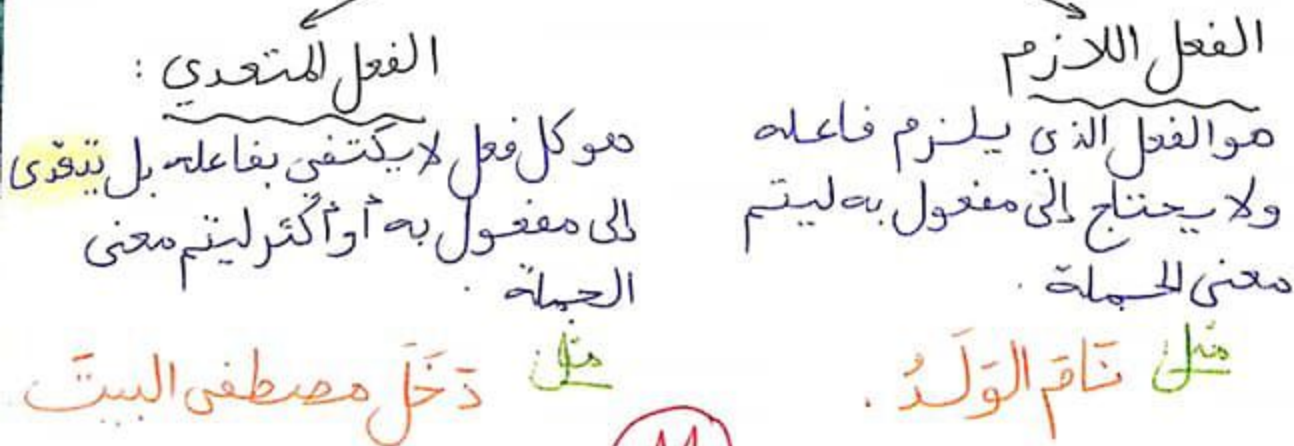 الفعل اللازم
هو الفعل الذي يلزم فاعله
ولا يحتاج إلى مفعول به ليتم
معنى الجملة .
مثل نَامَ الوَلَدُ .
الفعل المتعدي :
هو كل فعل لا يكتفي بفاعله بل يتعدى
إلى مفعول به أو أكثر ليتم معنى
الجملة .
مثل دَخَلَ مصطفى البيتَ